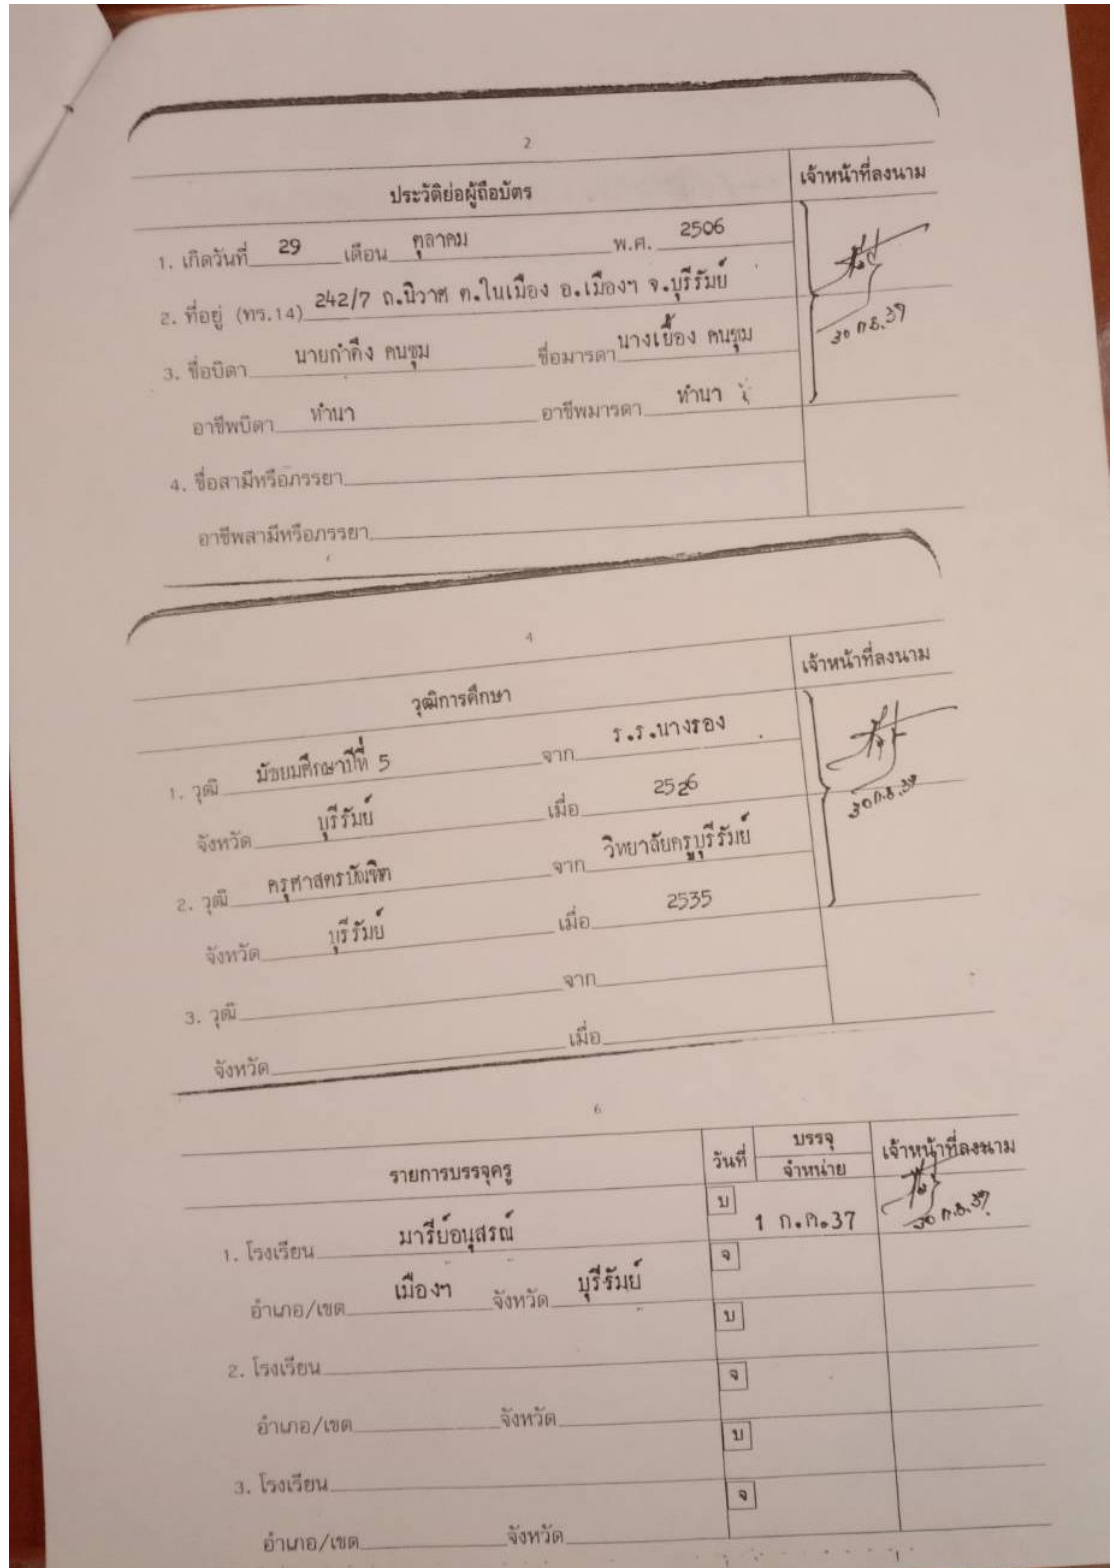 2
ประวัติย่อผู้ถือบัตร เจ้าหน้าที่ลงนาม
1. เกิดวันที่ 29 เดือน ตุลาคม พ.ศ. 2506
2. ที่อยู่ (ทร.14) 242/7 ถ.นิวาศ ต.ในเมือง อ.เมืองฯ จ.บุรีรัมย์
30 ก.ย.37
3. ชื่อบิดา นายกำคึง คนชุม ชื่อมารดา นางเยื้อง คนชุม
อาชีพบิดา ทำนา อาชีพมารดา ทำนา
4. ชื่อสามีหรือภรรยา
อาชีพสามีหรือภรรยา
4
วุฒิการศึกษา เจ้าหน้าที่ลงนาม
1. วุฒิ มัธยมศึกษาปีที่ 5 จาก ร.ร.นางรอง
จังหวัด บุรีรัมย์ เมื่อ 2526
30 ก.ย.37
2. วุฒิ ครุศาสตรบัณฑิต จาก วิทยาลัยครูบุรีรัมย์
จังหวัด บุรีรัมย์ เมื่อ 2535
3. วุฒิ จาก
จังหวัด เมื่อ
6
รายการบรรจุครู วันที่ บรรจุ เจ้าหน้าที่ลงนาม
จำหน่าย
1. โรงเรียน มารีย์อนุสรณ์ บ 1 ก.ค.37 30 ก.ย.37
อำเภอ/เขต เมืองฯ จังหวัด บุรีรัมย์ จ
2. โรงเรียน บ
อำเภอ/เขต จังหวัด จ
3. โรงเรียน บ
อำเภอ/เขต จังหวัด จ